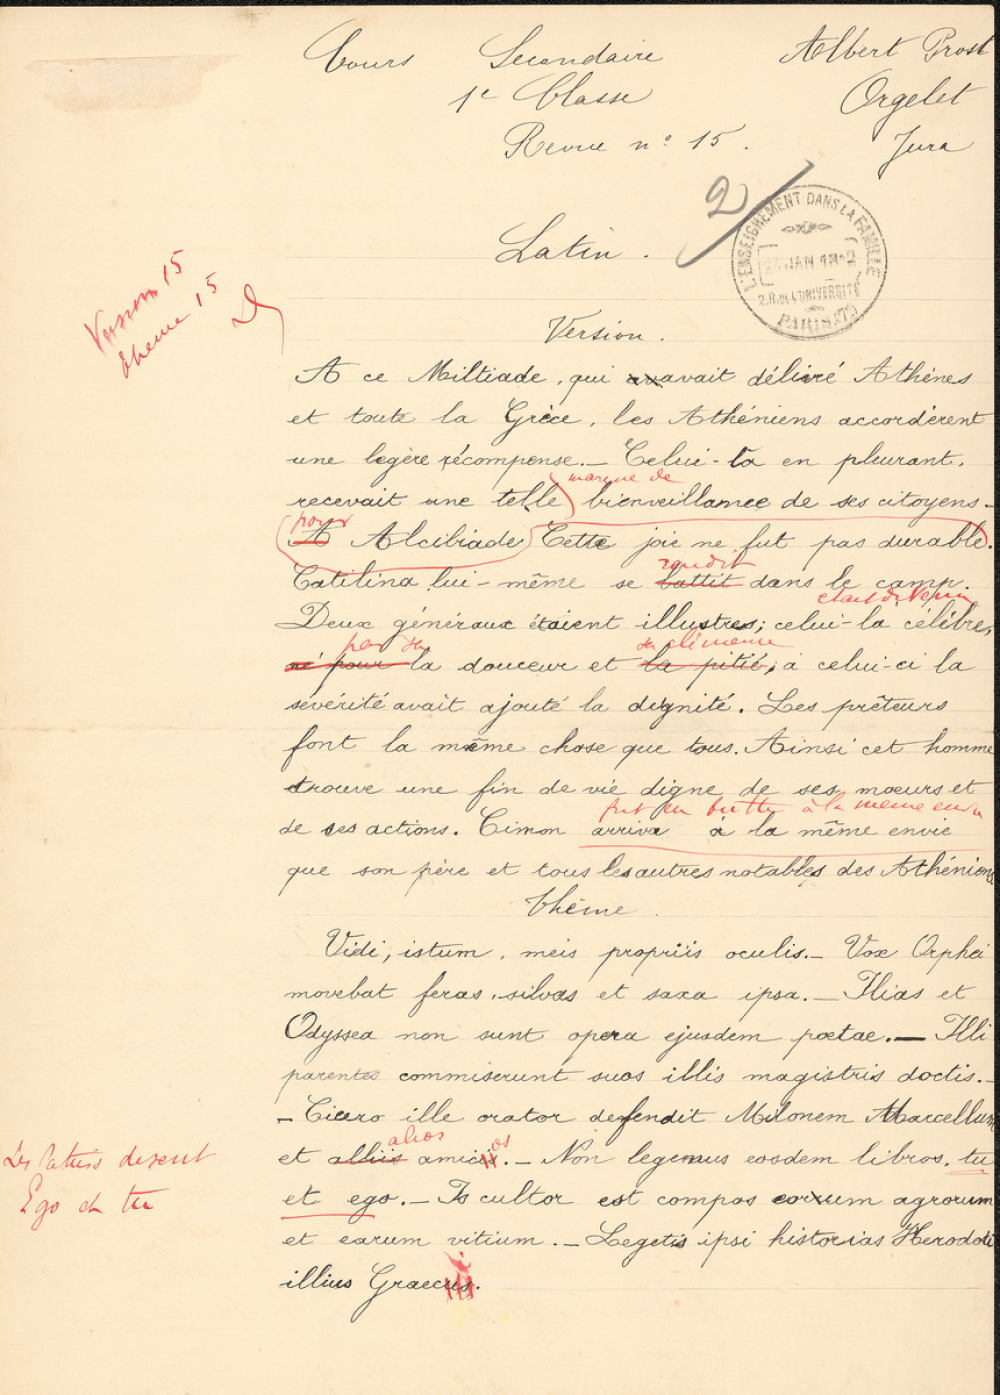 Cours Secondaire Albert Prost
1e Classe Orgelet
Revue n° 15. Jura
2
L'ENSEIGNEMENT DANS LA FAMILLE
JAN
2.R. DE L'UNIVERSITÉ
PARIS
Latin.
Version 15
thème 15
Version.
A ce Miltiade, qui avait délivré Athènes
et toute la Grèce, les Athéniens accordèrent
une légère récompense. _ Celui-là en pleurant,
marque de
recevait une telle bienveillance de ses citoyens _
pour
A Alcibiade Cette joie ne fut pas durable.
rendit
Catilina lui-même se battit dans le camp.
était devenu
Deux généraux étaient illustres; celui-là célèbre,
par sa sa clémence
né pour la douceur et la pitié, à celui-ci la
sévérité avait ajouté la dignité. Les prêteurs
font la même chose que tous. Ainsi cet homme
trouve une fin de vie digne de ses mœurs et
fut en butte à la même envie
de ses actions. Cimon arriva à la même envie
que son père et tous les autres notables des Athéniens
Thème.
Vidi, istum, meis propriis oculis. _ Vox Orphei
movebat feras, silvas et saxa ipsa. _ Ilias et
Odyssea non sunt opera ejusdem poetae. _ Illi
parentes commiserunt suos illis magistris doctis. _
_ Cicero ille orator defendit Milonem Marcellum
alios os
et alliis amicis. _ Non legemus eosdem libros, tu
Les latins disent
et ego. _ Is cultor est compos eorum agrorum
Ego et tu
et earum vitium. _ Legetis ipsi historias Herodoti
illius Graecus.
i